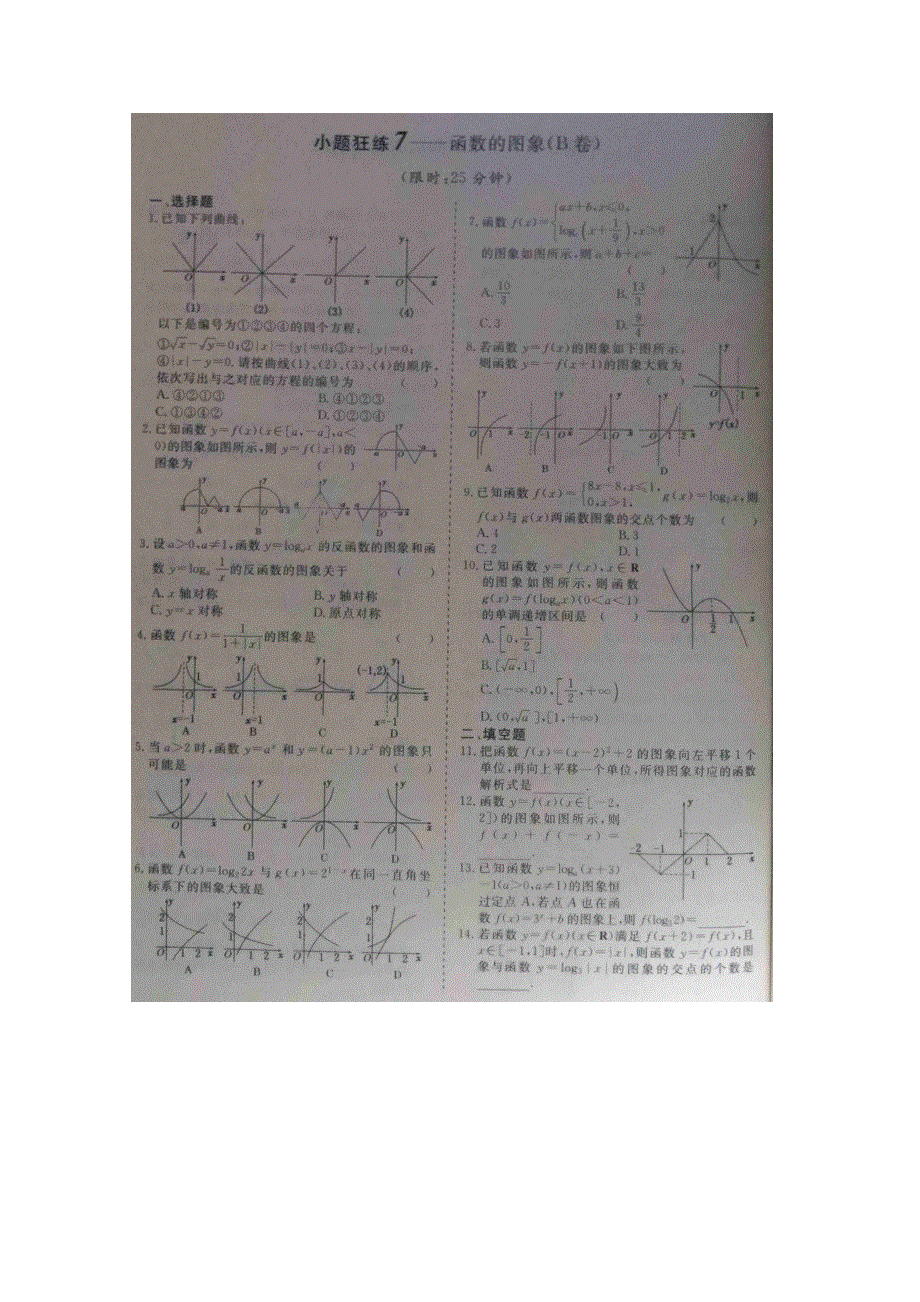 小题狂练7——函数的图象(B卷)
(限时:25分钟)
一、选择题
1.已知下列曲线:
(1) (2) (3) (4)
以下是编号为①②③④的四个方程:
①√x-√y=0;②|x|-|y|=0;③x-|y|=0;
④|x|-y=0.请按曲线(1)、(2)、(3)、(4)的顺序,
依次写出与之对应的方程的编号为 ( )
A.④②①③ B.④①②③
C.①③④② D.①②③④
2.已知函数y=f(x)(x∈[a,-a],a<
0)的图象如图所示,则y=f(|x|)的
图象为 ( )
A B D
3.设a>0,a≠1,函数y=logₐx的反函数的图象和函
数y=logₐ 1/x 的反函数的图象关于 ( )
A.x轴对称 B.y轴对称
C.y=x对称 D.原点对称
4.函数f(x)=1/(1+|x|)的图象是 ( )
(-1,2)
x=-1 x=1 x=-1
A B C D
5.当a>2时,函数y=aˣ和y=(a-1)x²的图象只
可能是 ( )
A B C D
6.函数f(x)=log₂2x与g(x)= 在同一直角坐
标系下的图象大致是 ( )
A B C D
7.函数f(x)={ax+b,x≤0,
log_c(x+1/9),x>0
的图象如图所示,则a+b+c=
( )
A.10/3 B.13/3
C.3 D.9/4
8.若函数y=f(x)的图象如下图所示,
则函数y=-f(x+1)的图象大致为
( )
y=f(x)
A B C D
9.已知函数f(x)={8x-8,x≤1, 0,x>1, g(x)=log₂x,则
f(x)与g(x)两函数图象的交点个数为 ( )
A.4 B.3
C.2 D.1
10.已知函数y=f(x),x∈R
的图象如图所示,则函数
g(x)=f(logₐx)(0<a<1)
的单调递增区间是 ( )
A.[0,1/2]
B.[√a,1]
C.(-∞,0),[1/2,+∞)
D.(0,√a],[1,+∞)
二、填空题
11.把函数f(x)=(x-2)²+2的图象向左平移1个
单位,再向上平移一个单位,所得图象对应的函数
解析式是________.
12.函数y=f(x)(x∈[-2,
2])的图象如图所示,则
f(x)+f(-x)=
________.
13.已知函数y=logₐ(x+3)
-1(a>0,a≠1)的图象恒
过定点A,若点A也在函
数f(x)=3ˣ+b的图象上,则f(log₃2)=________.
14.若函数y=f(x)(x∈R)满足f(x+2)=f(x),且
x∈[-1,1]时,f(x)=|x|,则函数y=f(x)的图
象与函数y=log₃|x|的图象的交点的个数是
________.